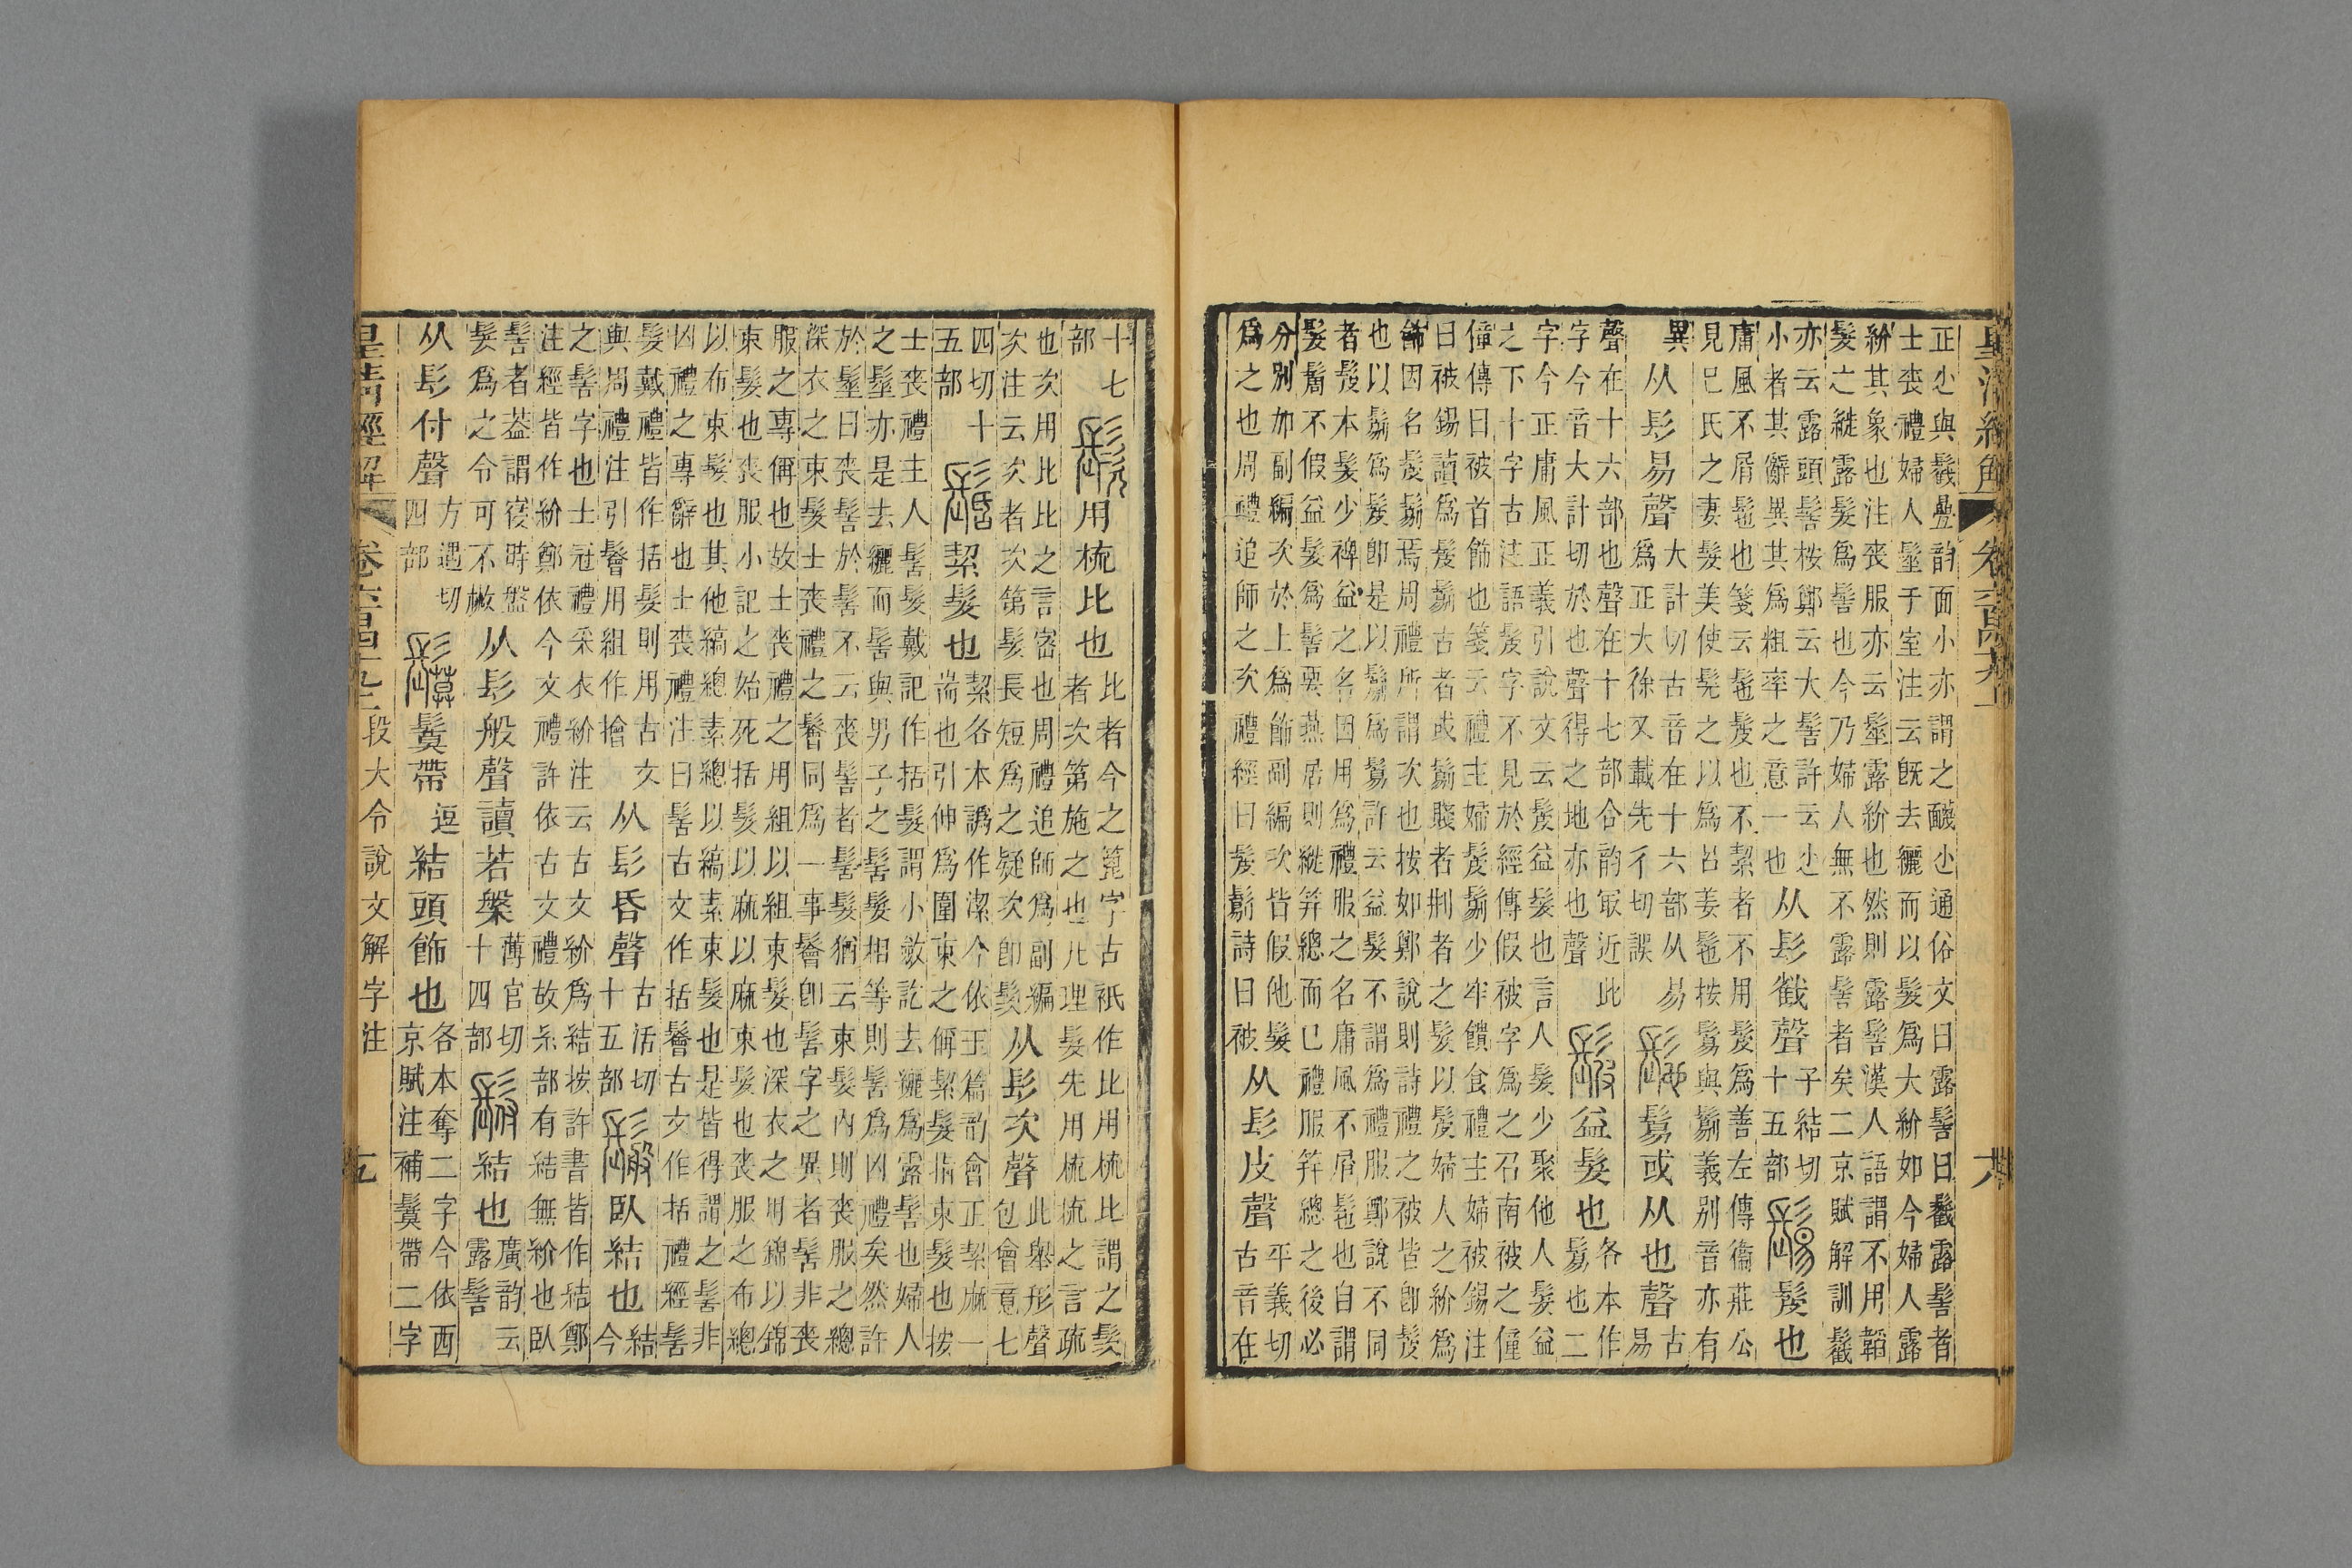 皇清經解 卷六百四十九上 六
正尐與鬣疊韵而小亦謂之䰖尐通俗文曰露髻曰䰖露髻者
士喪禮婦人髽于室注云旣去纚而以髮爲大紒如今婦人露
紒其象也注喪服亦云髽露紒也然則露髻漢人語謂不用韜
髮之縰露髮爲髻也今乃婦人無不露髻者矣二京賦解訓䰖
亦云露頭髻桉鄭云大髻許云尐
小者其辭異其爲粗率之意一也
从髟䰖聲 子結切
十五部 鬄 髲也
庸風不屑髢也箋云髢髲也不絜者不用髲爲善左傳衞莊公
見巳氏之妻髮美使髡之以爲呂姜髢按鬄與鬄義别音亦有
異 从髟易聲 大計切古音在十六部从易
爲正大徐又載先彳切誤 髢 鬄或从也聲 古
易
聲在十六部也聲在十七部合韵冣近此
字今音大計切於也聲得之地亦也聲 髲 益髮也 各本作
鬄也二
字今正庸風正義引說文云髲益髮也言人髮少聚他人髮益
之下十字古注語髲字不見於經傳假被字爲之召南被之僮
僮傳曰被首飾也箋云禮主婦髲鬄少牢饋食禮主婦被錫注
曰被錫讀爲髲鬄古者或鬄賤者刑者之髮以髲婦人之紒爲
飾因名髲鬄焉周禮所謂次也按如鄭說則詩禮之被皆卽髲
也以鬄爲髲卽是以鬄爲鬄許云益髮不謂爲禮服鄭說不同
者髲本髮少裨益之名因用爲禮服之名庸風不屑髢也自謂
髮鬄不假益髮爲髻要燕居則縰筓總而巳禮服筓總之後必
分別加副編次於上爲飾副編次皆假他髮
爲之也周禮追師之次禮經曰髲鬄詩曰被 从髟皮聲 平義切
古音在
十七
部 䯸 用梳比也 比者今之篦字古衹作比用梳比謂之髮
者次第施之也凡理髮先用梳梳之言疏
也次用比比之言密也周禮追師爲副編
次注云次者次第髮長短爲之疑次卽䯸 从髟次聲 此舉形聲
包會意七
四切十
五部 髻 絜髮也 絜各本譌作潔今依玉篇韵會正絜麻一
耑也引伸爲圍束之偁絜髮指束髮也按
士喪禮主人髻髮戴記作括髮謂小斂訖去纚爲露髻也婦人
之髽亦是去纚而髻與男子之髻髮相等則髻爲凶禮矣然許
於髽曰喪髻於髻不云喪髻者髻髮猶云束髮内則喪服之總
深衣之束髮士喪禮之鬠同爲一事鬠卽髻字之異者髻非喪
服之專偁也故士喪禮之用組以組束髮也深衣之用錦以錦
束髮也喪服小記之始死括髮以麻以麻束髮也喪服之布總
以布束髮也其他縞總素總以縞素束髮也是皆得謂之髻非
凶禮之專辭也士喪禮注曰髻古文作括鬠古文作括禮經髻
髮戴禮皆作括髮則用古文
與周禮注引鬠用組作檜 从髟昏聲 古活切
十五部 鬆 臥結也 結
今
之髻字也士冠禮采衣紒注云古文紒爲結按許書皆作結鄭
注經皆作紒鄭依今文禮許依古文禮故糸部有結無紒也臥
髻者葢謂寑時盤
髮爲之令可不㪔 从髟般聲讀若槃 薄官切
十四部 䯻 結也 廣韵云
露髻
从髟付聲 方遇切
四部 鬕 鬕帶 逗 結頭飾也 各本奪二字今依西
京賦注補鬕帶二字
皇清經解 卷六百四十九上 段大令說文解字注 五